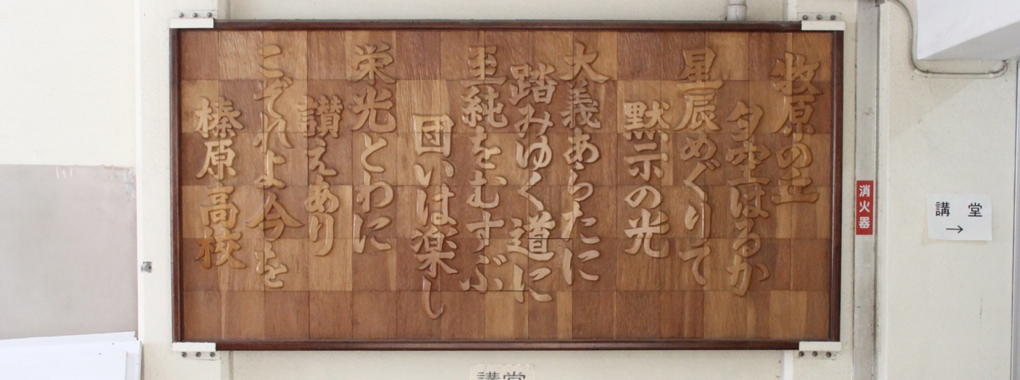 牧原の丘
夕空はるか
星辰めぐりて
黙示の光
大義あらたに
踏みゆく道に
至純をむすぶ
団いは楽し
栄光とわに
讃えあり
こぞれよ今を
榛原高校
消火器
講堂
→
講堂